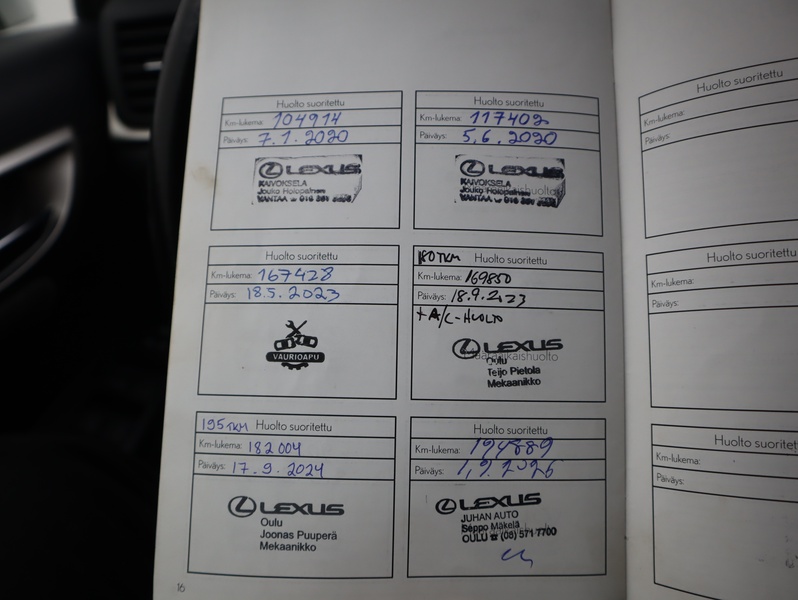 Huolto suoritettu
Km-lukema: 104914
Päiväys: 7.1.2020
LEXUS
KAIVOKSELA
Jouko Holopainen
Huolto suoritettu
Km-lukema: 117402
Päiväys: 5.6.2020
LEXUS
KAIVOKSELA
Jouko Holopainen
Huolto suoritettu
Km-lukema: 167428
Päiväys: 18.5.2023
VAURIOAPU
180TKM Huolto suoritettu
Km-lukema: 169850
Päiväys: 18.9.2023
+ A/C-HUOLTO
LEXUS
Määräaikaishuolto
Oulu
Teijo Pietola
Mekaanikko
195TKM Huolto suoritettu
Km-lukema: 182004
Päiväys: 17.9.2024
LEXUS
Oulu
Joonas Puuperä
Mekaanikko
Huolto suoritettu
Km-lukema: 194889
Päiväys:
LEXUS
JUHAN AUTO
Seppo Mäkelä
OULU ☎ (08) 571 7700
16
Huolto suoritettu
Km-lukema:
Päiväys:
Huolto suoritettu
Km-lukema:
Päiväys:
Huolto suoritettu
Km-lukema:
Päiväys: